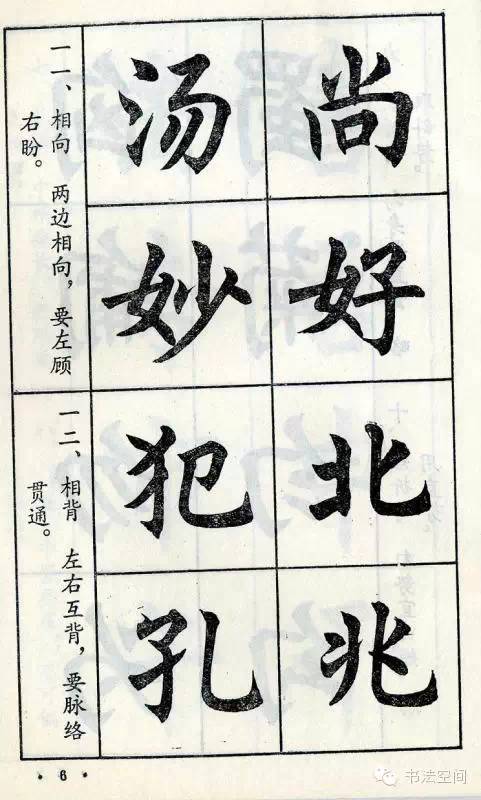 尚好北兆
汤妙犯孔
一一、相向 两边相向,要左顾
右盼。
一二、相背 左右互背,要脉络
贯通。
· 6 ·
书法空间